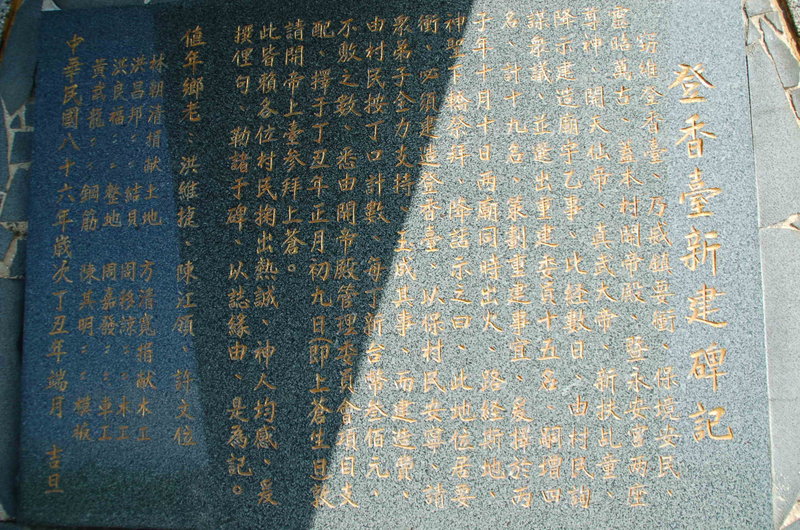 登香臺新建碑記
窃維登香臺、乃威鎮要衝、保境安民、
靈昭萬古、蓋本村開帝殿、暨永安宮兩座
尊神、開天仙帝、真武大帝、新扶乩童、
降示建造廟宇乙事、比經數日、由村民詢
謀眾議、並選出重建委員十五名、嗣增四
名、計十九名、策劃重建事宜、爰擇於丙
子年十月十日兩廟同時出火、路經斯地、
神駕下輪祭拜、降諭示之曰、此地位居要
衝、必須建造登香臺、以保村民安寧、請
眾弟子全力支持、玉成其事、而建造費、
由村民按丁口計數、每丁新台幣叁佰元、
不敷之數、悉由開帝殿管理委員會項目支
配、擇于丁丑年正月初九日(即上蒼生日敦
請開帝上臺參拜上蒼。
此皆賴各位村民掬出熱誠、神人均感、爰
撰俚句、勒諸于碑、以誌緣由、是為記。
值年鄉老、洪維捷、陳江領、許文位
林朝清捐献土地 方清寬捐献水工
洪昌邦 結貝 周格諒 木工
洪良福 整地 周嘉發 車工
黃高龍 鋼筋 陳其明 模板
中華民國八十六年歲次丁丑年端月 吉旦